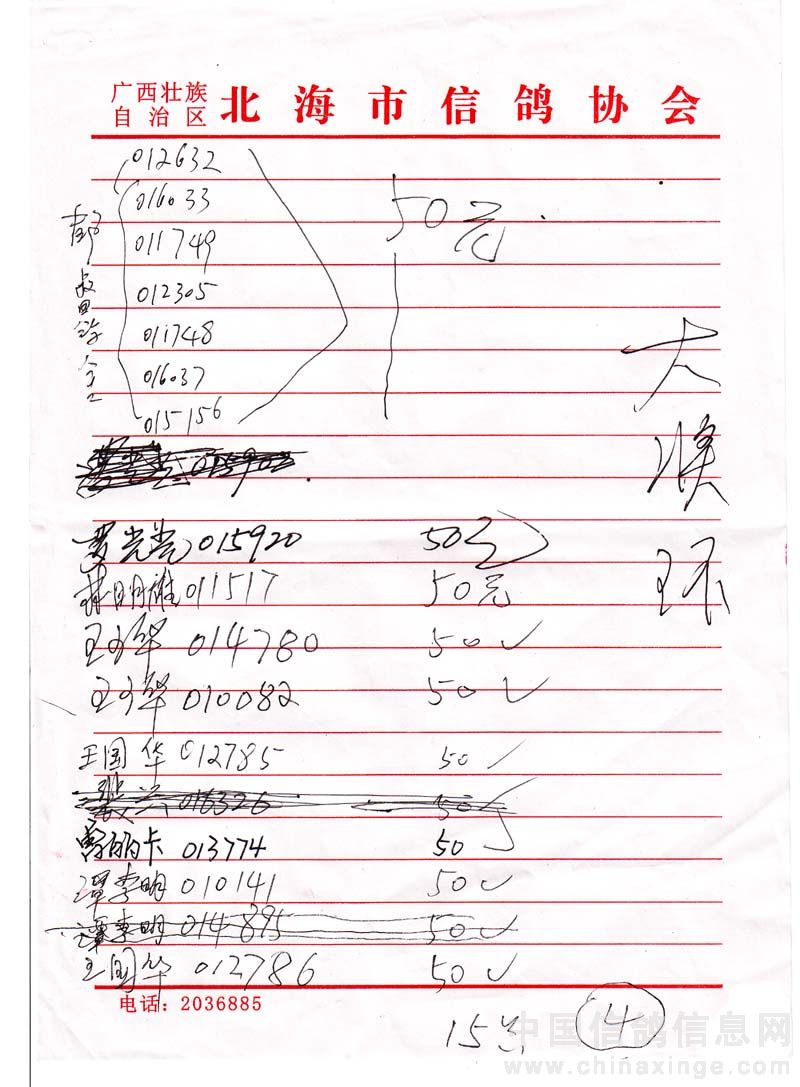 广西壮族
自治区
北海市信鸽协会
012632
016033
50元
011749
012305
011748
016037
015156
大
环
015920 50元
明雄 011517 50元
014780 50 ✓
010082 50 ✓
王国华 012785 50 ✓
016326 50 ✓
卡 013774 50
谭李明 010141 50 ✓
谭李明 014895 50 ✓
王国华 012786 50 ✓
电话：2036885
15 ④
中国信鸽信息网
www.chinaxinge.com